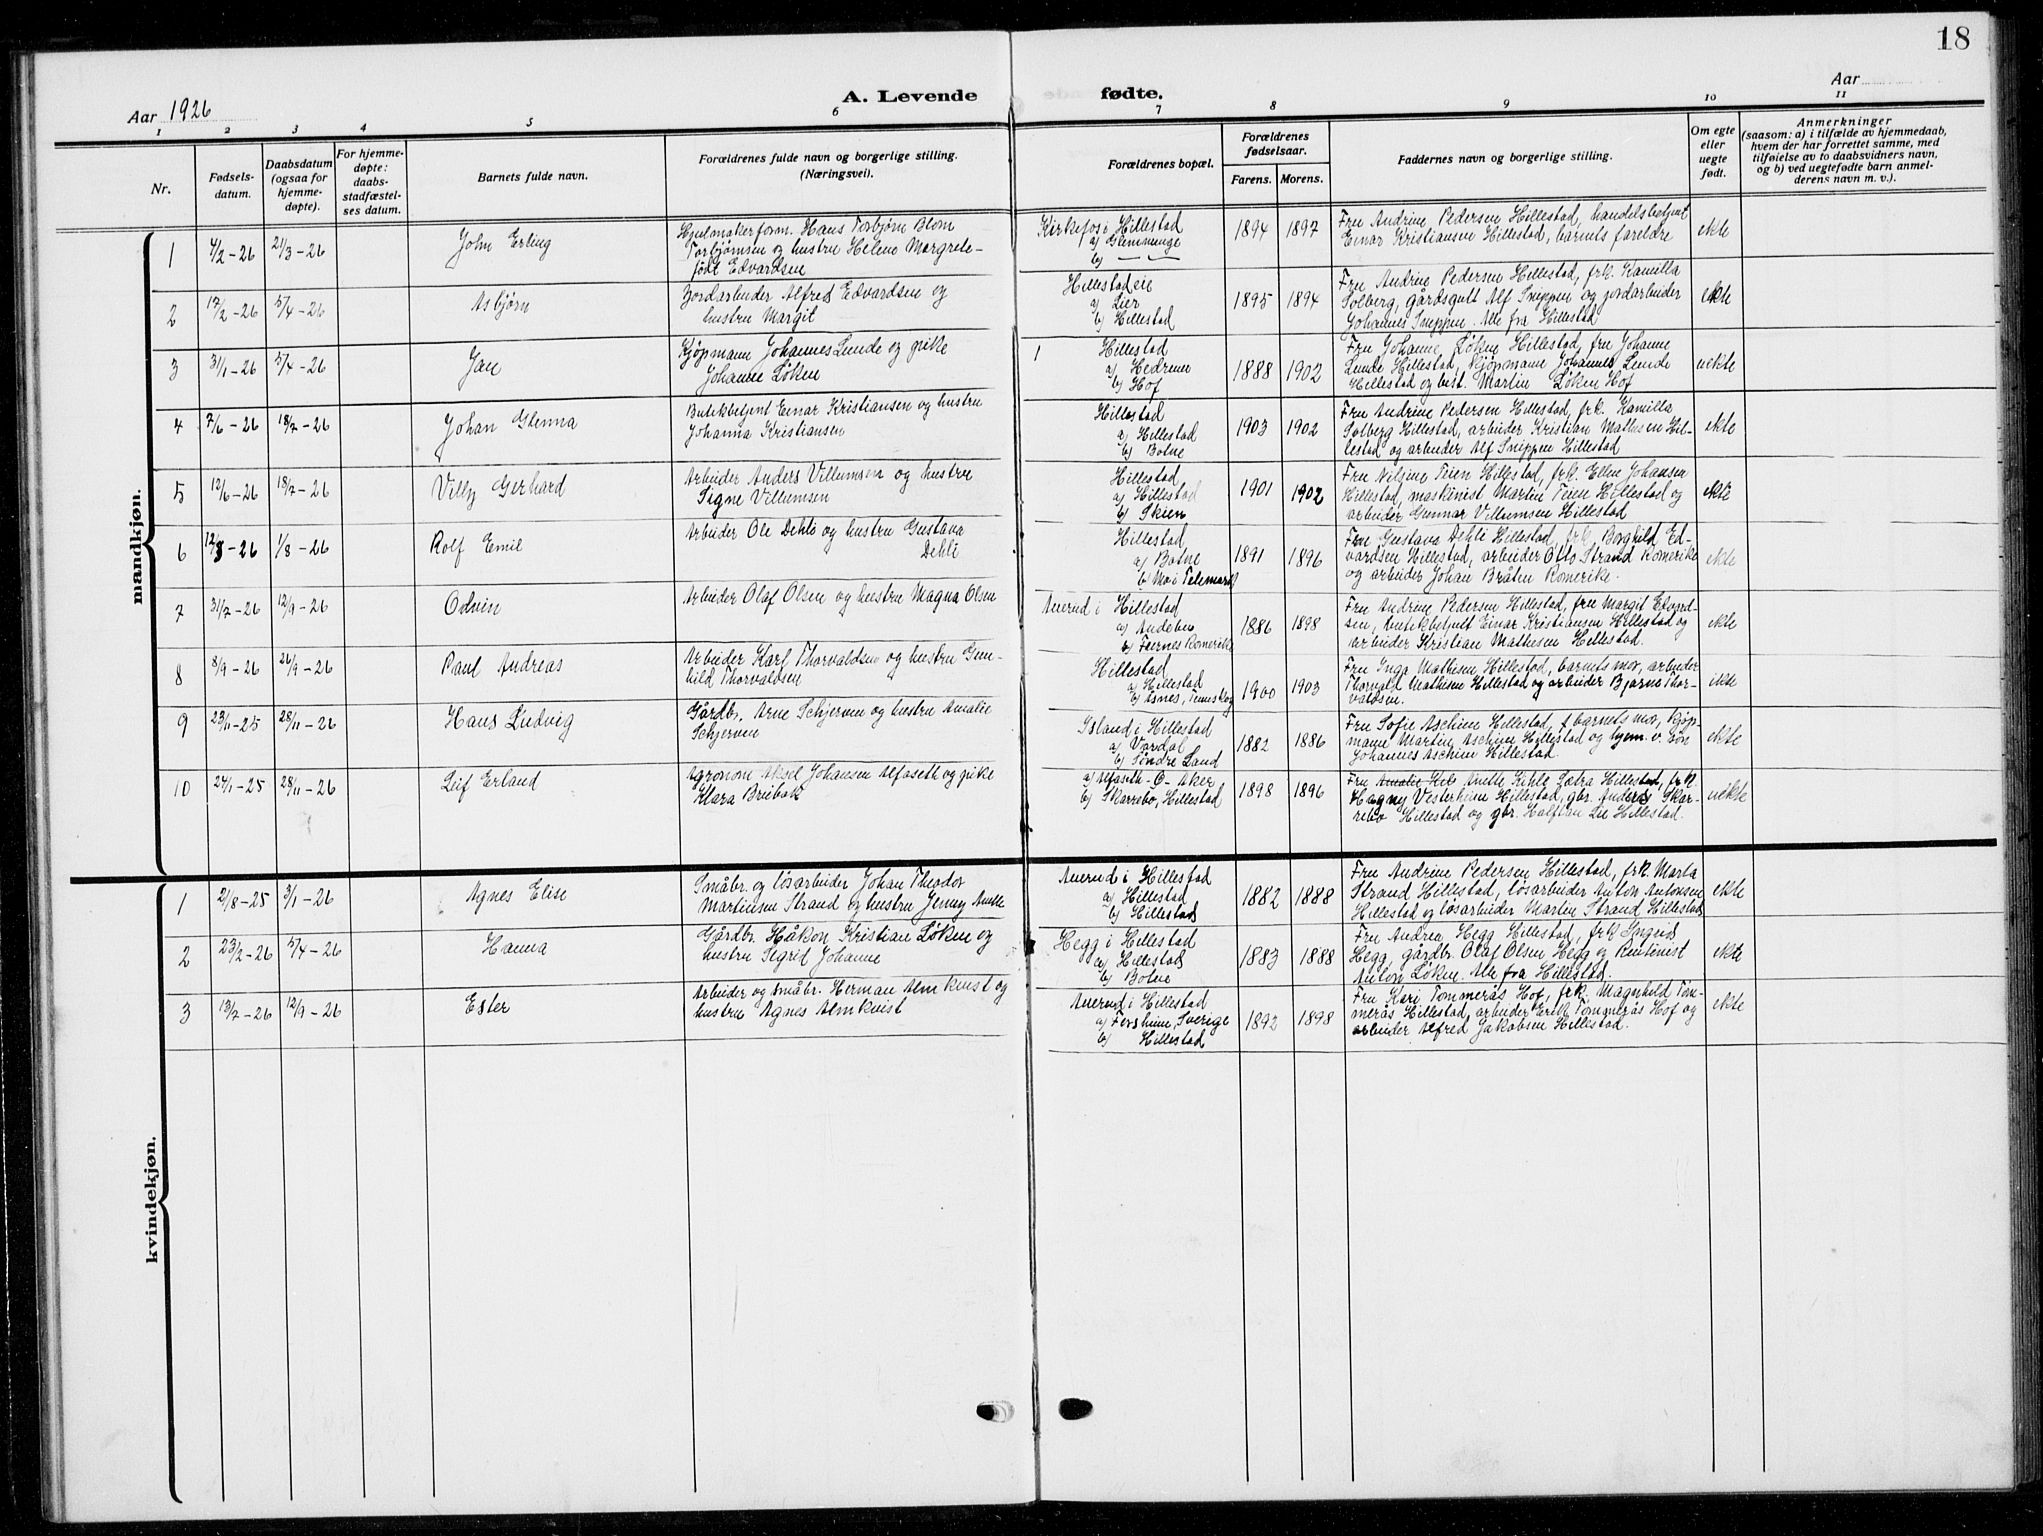 18
Aar 1926
A. Levende fødte.
Aar
1 2 3 4 5 6 7 8 9 10 11
Nr.
Fødsels-
datum.
Daabsdatum
(ogsaa for
hjemme-
døpte).
For hjemme-
døpte:
daabs-
stadfæstel-
ses datum.
Barnets fulde navn.
Forældrenes fulde navn og borgerlige stilling.
(Næringsvei).
Forældrenes bopæl.
Forældrenes
fødselsaar.
Farens. Morens.
Faddernes navn og borgerlig stilling.
Om egte
eller
uegte
født.
Anmerkninger
(saasom: a) i tilfælde av hjemmedaab,
hvem der har forrettet samme, med
tilføielse av to daabsvidners navn,
og b) ved uegtefødte barn anmel-
derens navn m. v.).
mandkjøn.
1 4/2-26 21/3-26 John Erling
Hjulmakerform. Hans Torbjørn Blom
Torbjørnsen og hustru Helene Margrete
født Edvardsen
Kirkefos i Hillestad
a) Glemminge
b) — —
1894 1897
Fru Andrine Pedersen Hillestad, handelsbetjent
Einar Kristiansen Hillestad, barnets foreldre
ekte
2 17/2-26 5/4-26 Asbjørn
Jordarbeider Alfred Edvardsen og
hustru Margit
Hillestadeie
a) Lier
b) Hillestad
1895 1894
Fru Andrine Pedersen Hillestad, frk. Kamilla
Solberg, gårdsgutt Alf Snippen og jordarbeider
Johannes Snippen. Alle fra Hillestad
ekte
3 31/1-26 5/4-26 Jan
Kjøpmann Johannes Lunde og pike
Johanne Løken
1 Hillestad
a) Hedrum
b) Hof
1888 1902
Fru Johanne Løken Hillestad, fru Johanne
Lunde Hillestad, kjøpmann Johannes Lunde
Hillestad og best. Martin Løken Hof
uekte
4 7/6-26 18/7-26 Johan Glenna
Butikbetjent Einar Kristiansen og hustru
Johanna Kristiansen
Hillestad
a) Hillestad
b) Botne
1903 1902
Fru Andrine Pedersen Hillestad, frk. Kamilla
Solberg Hillestad, arbeider Kristian Mathisen Hil-
lestad og arbeider Alf Snippen Hillestad
ekte
5 12/6-26 18/7-26 Villy Gerhard
Arbeider Anders Villumsen og hustru
Signe Villumsen
Hillestad
a) Hillestad
b) Skien
1901 1902
Fru Nilsine Teien Hillestad, frk. Ellen Johansen
Hillestad, maskinist Martin Teien Hillestad og
arbeider Gunnar Villumsen Hillestad
ekte
6 -26 1/8-26 Rolf Emil
Arbeider Ole Dehli og hustru Gustava
Dehli
Hillestad
a) Botne
b) Mo i Telemark
1891 1896
Fru Gustava Dehli Hillestad, frk. Borghild Ed-
vardsen Hillestad, arbeider Otto Strand Romerike
og arbeider Johan Bråten Romerike.
ekte
7 31/7-26 12/9-26 Odvin
Arbeider Olaf Olsen og hustru Magna Olsen
Auerud i Hillestad
a) Andebu
b) Romerike
1886 1898
Fru Andrine Pedersen Hillestad, fru Margit Edvard-
sen, butikbetjent Einar Kristiansen Hillestad og
arbeider Kristian Mathesen Hillestad.
ekte
8 8/9-26 26/9-26 Paul Andreas
Arbeider Karl Thorvaldsen og hustru Gun-
hild Thorvaldsen
Hillestad
a) Hillestad
b) Asnes,
1900 1903
Fru Inga Mathisen Hillestad, barnets mor, arbeider
Thorvald Mathisen Hillestad og arbeider Bjarne Thor-
valdsen.
ekte
9 23/11-25 28/11-26 Hans Ludvig
Gårdbr. Arne Schjerven og hustru Amalie
Schjerven
Island i Hillestad
a) Vardal
b) Søndre Land
1882 1886
Fru Sofie Aschim Hillestad, barnets mor, kjøp-
mann Martin Aschim Hillestad og hjem. v. søn
Johannes Aschim Hillestad
ekte
10 24/1-25 28/11-26 Leif Erland
Agronom Aksel Johansen Alfaseth og pike
Klara Brubak
a) Alfaseth-Ø-Aker
b) Skarrebo, Hillestad
1898 1896
Fru Anette Kihle Sætra Hillestad, frk.
Hagny Vesterheim Hillestad, gbr. Anders Skar-
rebo Hillestad og gbr. Halfdan Lie Hillestad.
uekte
kvindekjøn.
1 21/8-25 3/1-26 Agnes Elise
Småbr. og løsarbeider Johan Theodor
Martinsen Strand og hustru Jenny Anette
Auerud i Hillestad
a) Hillestad
b) Hillestad
1882 1888
Fru Andrine Pedersen Hillestad, frk. Marta
Strand Hillestad, løsarbeider Anton Antonsen
Hillestad og løsarbeider Martin Strand Hillestad
ekte
2 23/2-26 5/4-26 Hanna
Gårdbr. Håkon Kristian Løken og
hustru Sigrid Johanne
Hegg i Hillestad
a) Hillestad
b) Botne
1883 1888
Fru Andrea Hegg Hillestad, frk Ingrid
Hegg, gårdbr. Olaf Olsen Hegg og Rentenist
Anton Løken. Alle fra Hillestad.
ekte
3 13/7-26 12/9-26 Ester
Arbeider og småbr. Herman Almkvist og
hustru Agnes Almkvist
Auerud i Hillestad
a) Sverige
b) Hillestad
1892 1898
Fru Kari Tommerås Hof, frk. Magnhild Tom-
merås Hillestad, arbeider Erik Tommerås Hof og
arbeider Alfred Jakobsen Hillestad.
ekte